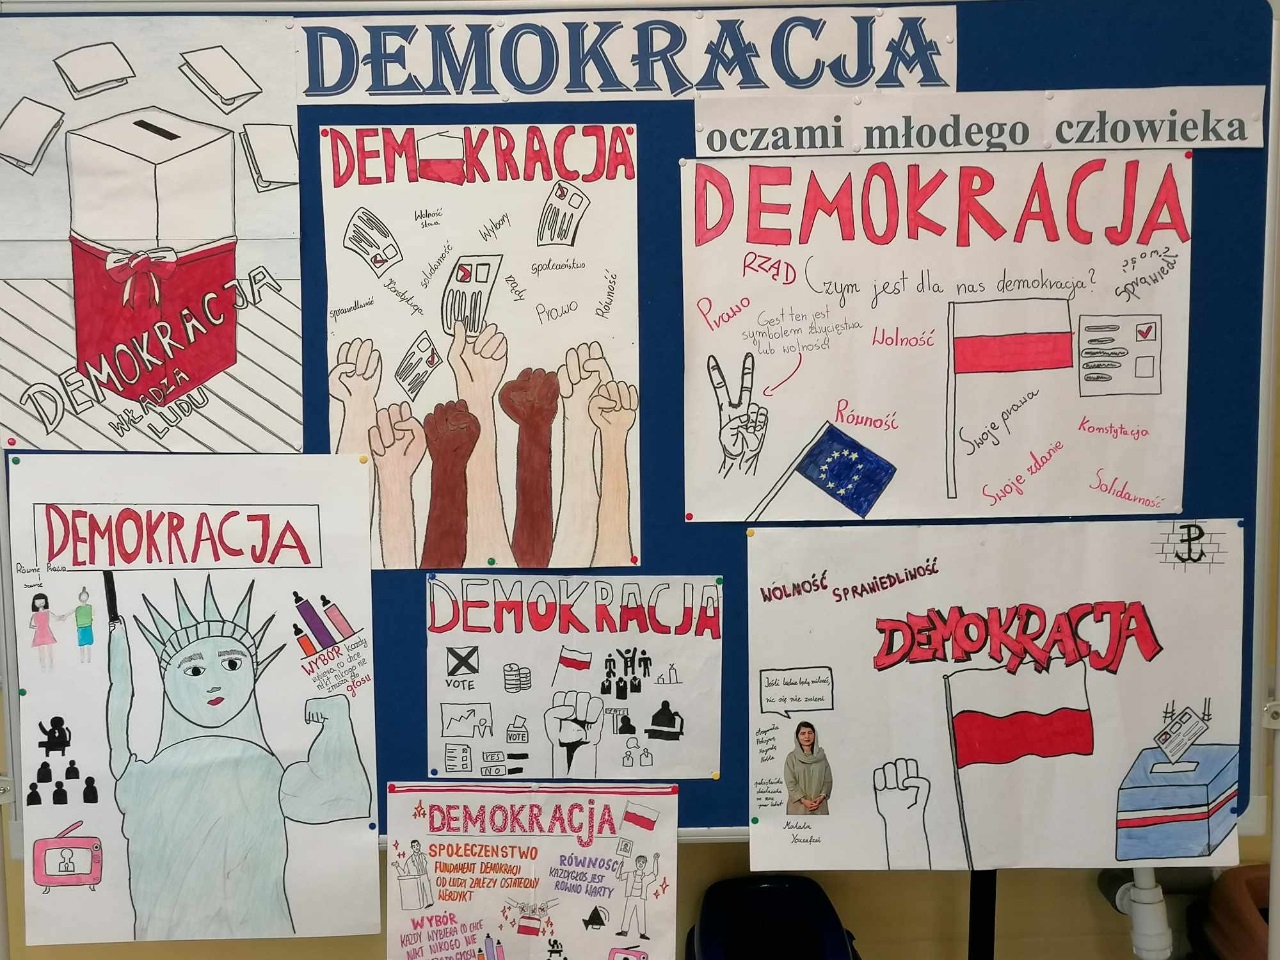 DEMOKRACJA
oczami młodego człowieka
DEMOKRACJA
WŁADZA
LUDU
DEMOKRACJA
Wolność
słowa
Wybory
solidarność
Konstytucja
rządy
społeczeństwo
sprawiedliwość
Prawo
Równość
DEMOKRACJA
RZĄD
Czym jest dla nas demokracja?
Prawo
Gest ten jest
symbolem zwycięstwa
lub wolności
Wolność
Równość
Swoje prawa
Swoje zdanie
Konstytucja
Solidarność
DEMOKRACJA
Równe Prawa
i
WYBÓR każdy
wybiera co chce
nikt nikogo nie
zmusza do
głosu
DEMOKRACJA
VOTE
VOTE
YES
NO
WOLNOŚĆ SPRAWIEDLIWOŚĆ
DEMOKRACJA
Jeśli ludzie będą milczeć,
nic się nie zmieni
Malala
Yousafzai
DEMOKRACJA
SPOŁECZEŃSTWO
FUNDAMENT DEMOKRACJI
OD LUDZI ZALEŻY OSTATECZNY
WERDYKT
RÓWNOŚĆ
KAŻDY GŁOS JEST
RÓWNO WARTY
WYBÓR
KAŻDY WYBIERA CO CHCE
NIKT NIKOGO NIE